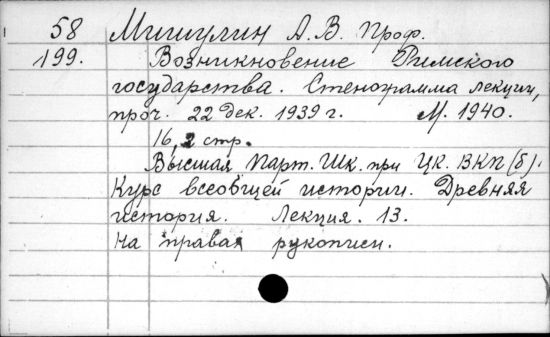 58 Мишулин А. В. Проф.
199. Возникновение Римского
государства. Стенограмма лекции,
проч. 22 дек. 1939 г. М. 1940.
16, 2 стр.
Высшая Парт. Шк. при ЦК. ВКП(б).
Курс всеобщей истории. Древняя
история. Лекция. 13.
На правах рукописи.